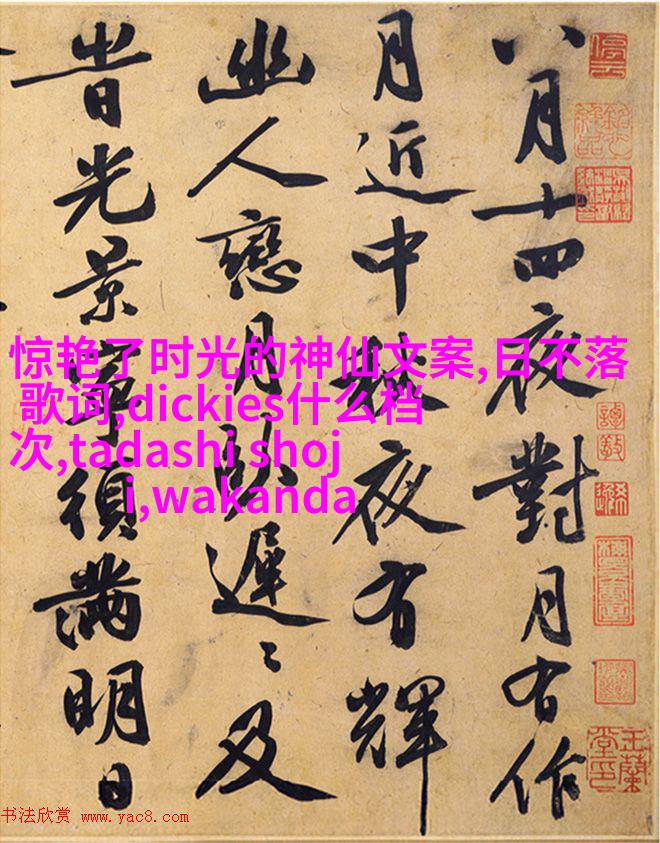 八月十四夜對月有作
月近中秋夜有輝
幽人戀月臥遲〻及
旹光景寧須滿明日
惊艳了时光的神仙文案,日不落
歌词,dickies什么档
次,tadashi shoj
i,wakanda
停云
玉蘭堂印
书法欣赏 www.yac8.com